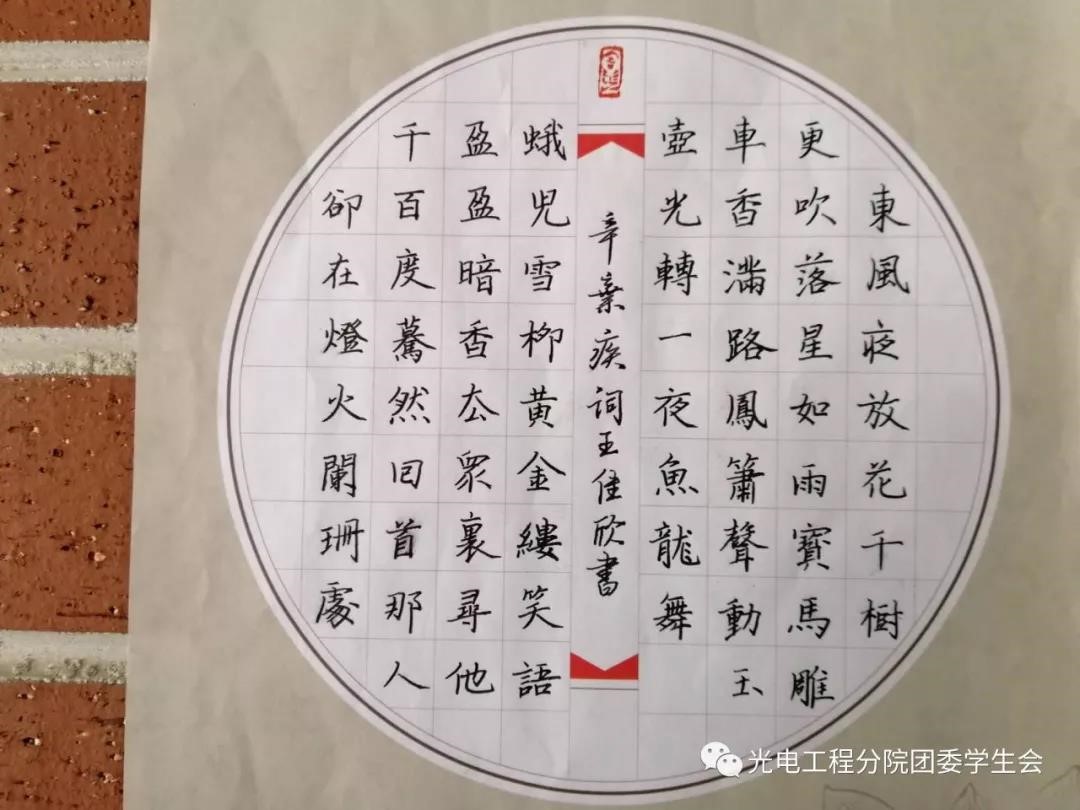 東風夜放花千樹
更吹落星如雨寶馬雕
車香滿路鳳簫聲動玉
壺光轉一夜魚龍舞
辛棄疾詞王佳欣書
蛾兒雪柳黃金縷笑語
盈盈暗香厺眾裏尋他
千百度驀然回首那人
卻在燈火闌珊處
光电工程分院团委学生会